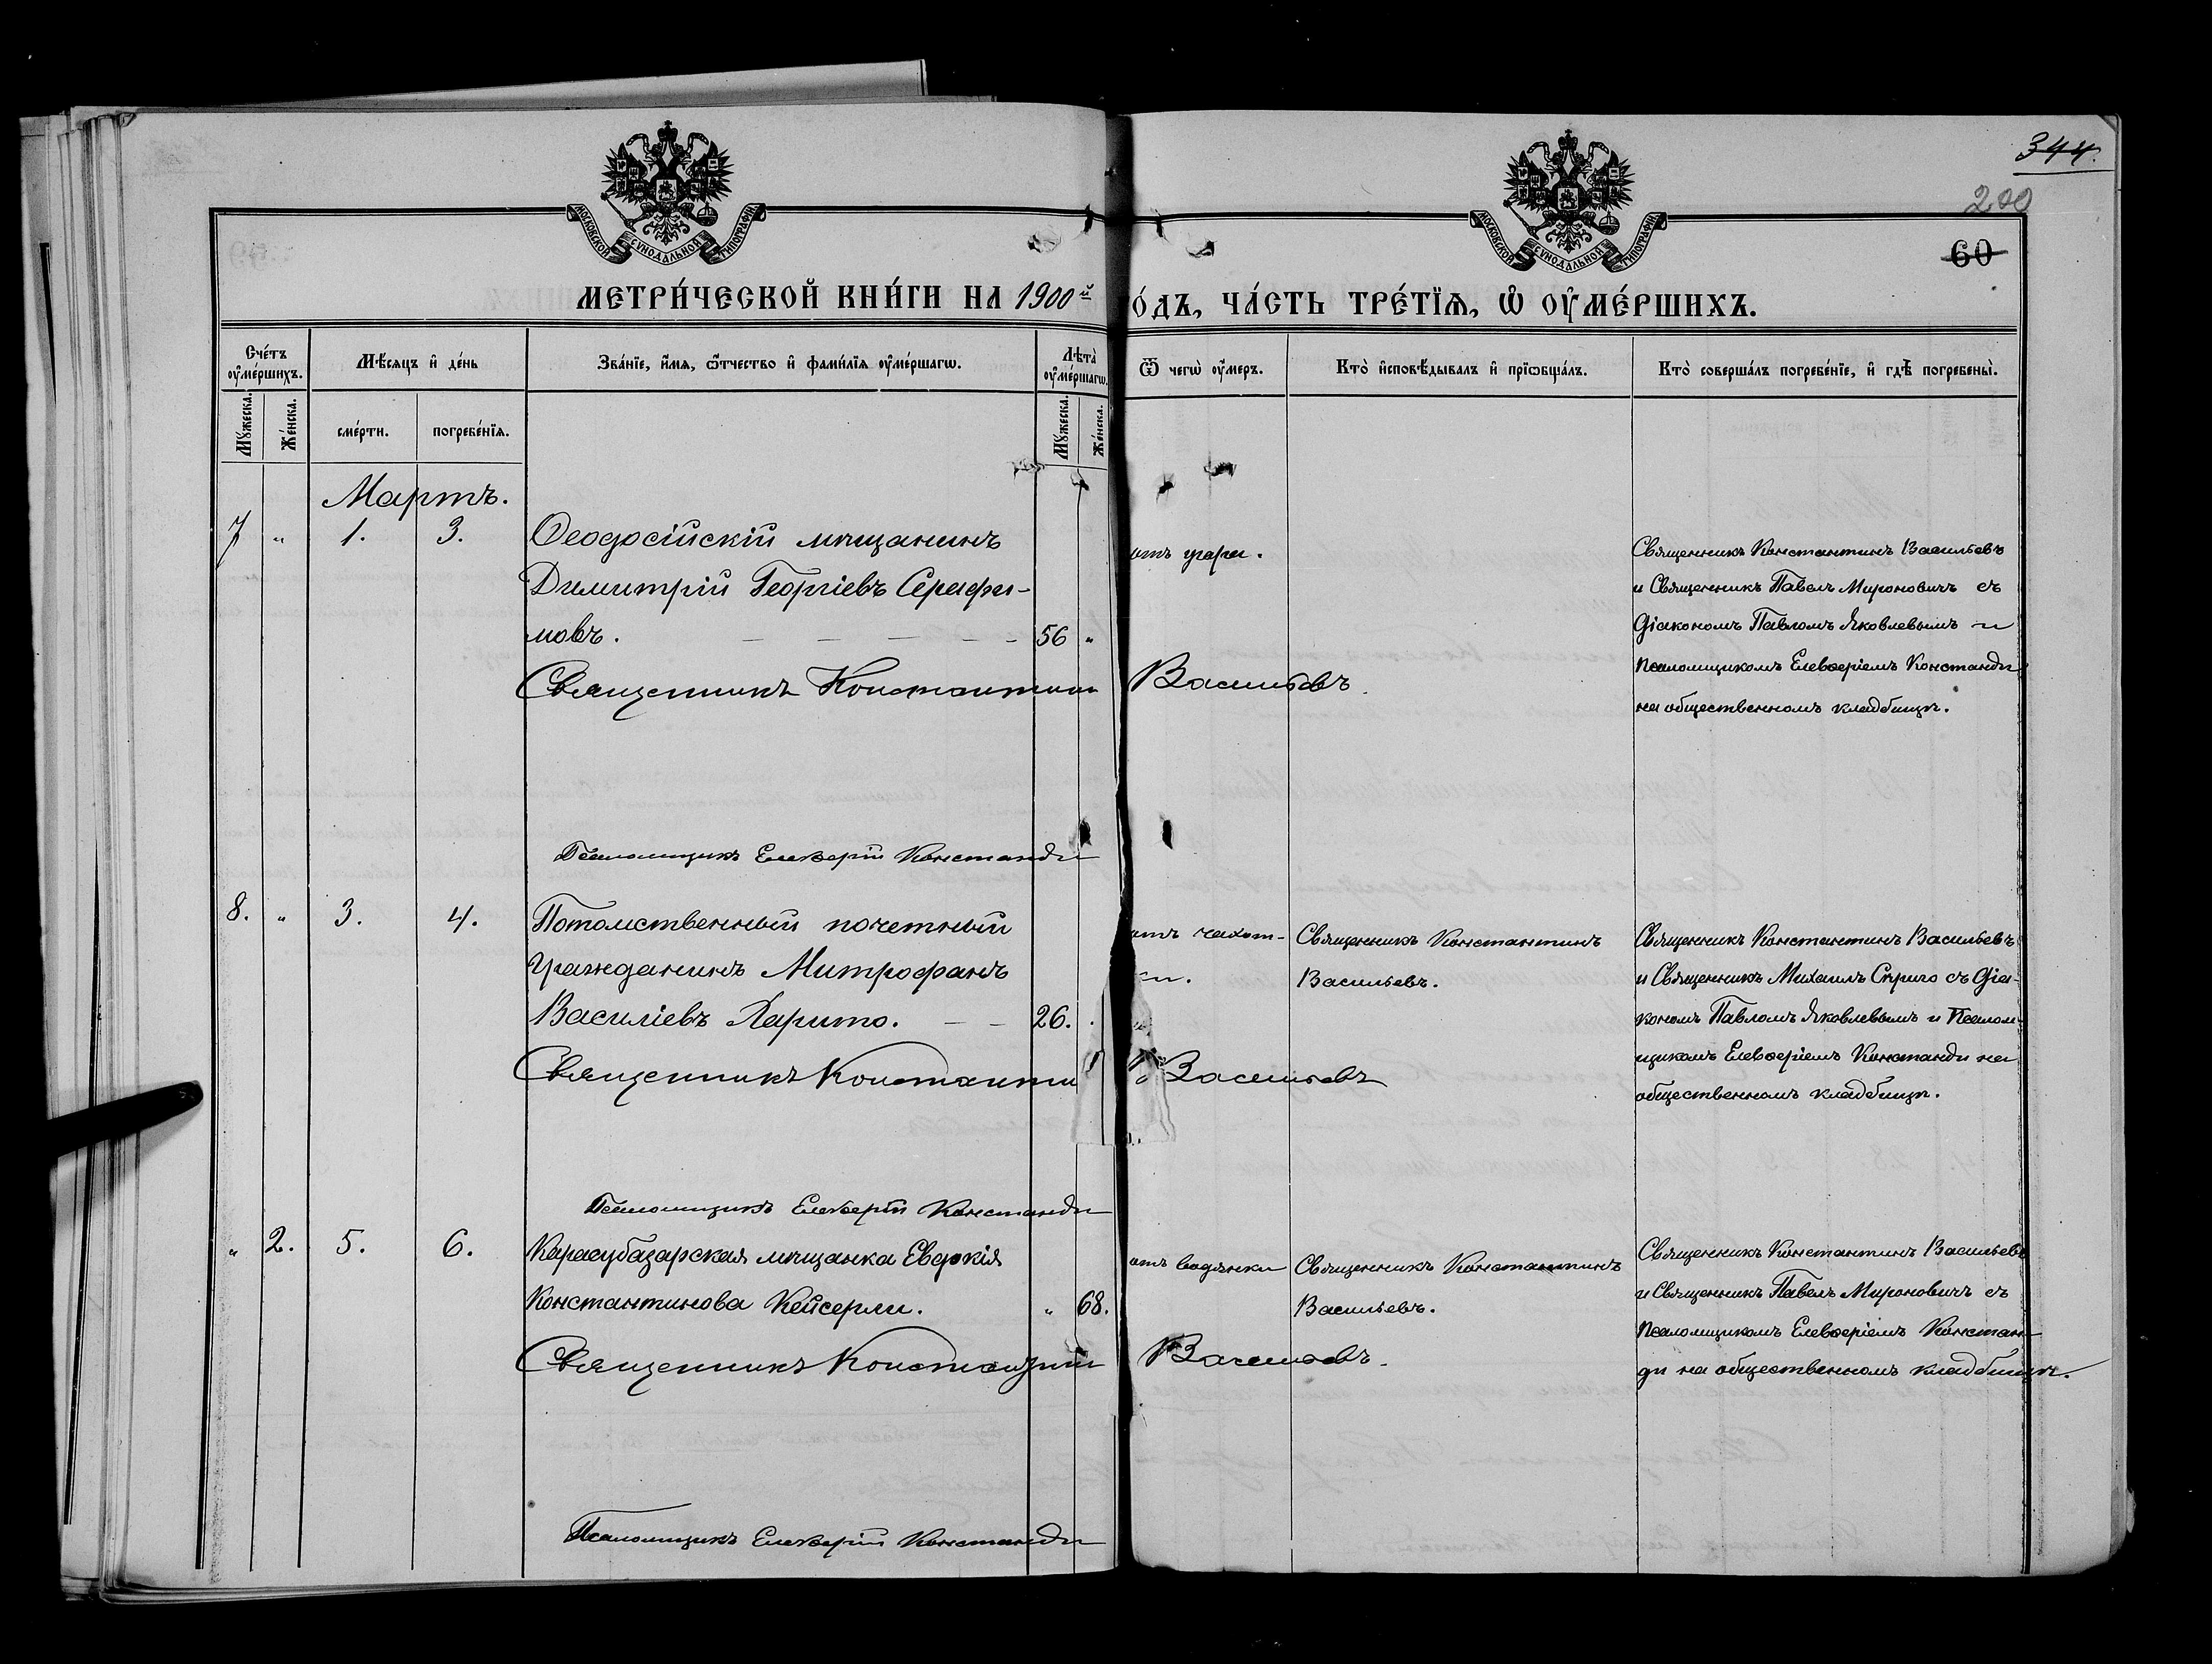 344.
200
60
МОСКОВСКОЙ СѴНОДАЛЬНОЙ ТИПОГРАФІИ
МОСКОВСКОЙ СѴНОДАЛЬНОЙ ТИПОГРАФІИ
МЕТРИ́ЧЕСКОЙ КНИ́ГИ НА 1900й
О́ДЪ, ЧА́СТЬ ТРЕ́ТЇѦ, Ѡ҆ ОУ҆МЕ́РШИХЪ.
Сче́тъ оу҆ме́ршихъ.
Мѣ́сяцъ и҆ де́нь
Зва́нїе, и҆́мѧ, ѻ҆́тчество и҆ фами́лїѧ оу҆ме́ршагѡ.
Лѣ̀та оу҆ме́ршагѡ.
Ѿ чегѡ̀ оу҆́меръ.
Кто̀ и҆сповѣ́дывалъ и҆ прїѡбща́лъ.
Кто̀ соверша́лъ погребе́нїе, и҆ гдѣ̀ погребены̀.
Мꙋ́жеска.
Же́нска.
сме́рти.
погребе́нїѧ.
Мꙋ́жеска.
Же́нска.
Мартъ.
7 " 1. 3. Ѳеодосійскій мѣщанинъ
Димитрій Георгіевъ Серафи-
мовъ. — — — — — 56 "
Священникъ Константинъ Васильевъ.
Псаломщикъ Елевѳерій Констанди
Священникъ Константинъ Васильевъ
и Священникъ Павелъ Мироновичъ съ
Діакономъ Павломъ Яковлевымъ и
Псаломщикомъ Елевѳеріемъ Констанди
на общественномъ кладбищѣ.
8. " 3. 4. Потомственный почетный
Гражданинъ Митрофанъ
Василіевъ Ларито. — — 26.
Священникъ Константинъ Васильевъ
Псаломщикъ Елевѳерій Констанди
отъ чахот-
ки.
Священникъ Константинъ
Васильевъ.
Священникъ Константинъ Васильевъ
и Священникъ Михаилъ съ Діа-
кономъ Павломъ Яковлевымъ и Псалом-
щикомъ Елевѳеріемъ Констанди на
общественномъ кладбищѣ.
" 2. 5. 6. Карасубазарская мѣщанка Евдокія
Константинова Кейсерли. " 68.
Священникъ Константинъ Васильевъ.
Псаломщикъ Елевѳерій Констанди
отъ водянки
Священникъ Константинъ
Васильевъ.
Священникъ Константинъ Васильевъ
и Священникъ Павелъ Мироновичъ съ
Псаломщикомъ Елевѳеріемъ Констан-
ди на общественномъ кладбищѣ.